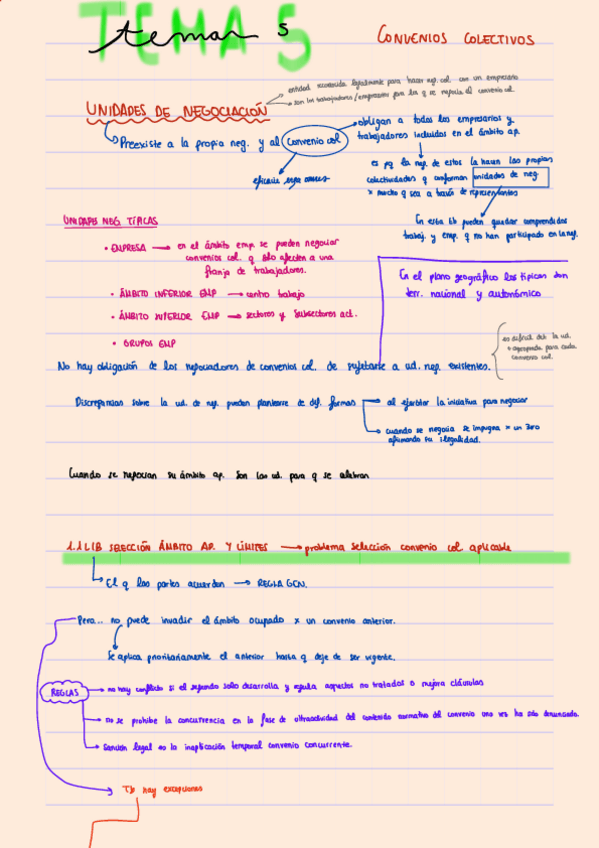 TEMA 5
tema 5
CONVENIOS COLECTIVOS
entidad reconocida legalmente para hacer neg. col. con un empresario
son los trabajadores/empresarios para los q se negocia el convenio col.
UNIDADES DE NEGOCIACIÓN
Preexiste a la propia neg. y al convenio col
eficacia erga omnes
obligan a todos los empresarios y
trabajadores incluidos en el ámbito ap.
es pq la neg. de estos la hacen las propias
colectividades q conforman unidades de neg.
x mucho q sea a través de representantes
En esta tb pueden quedar comprendidos
trabaj. y emp. q no han participado en la neg.
UNIDADES NEG. TÍPICAS
• EMPRESA → en el ámbito emp. se pueden negociar
convenios col. q sólo afecten a una
franja de trabajadores.
• ÁMBITO INFERIOR EMP → centro trabajo
• ÁMBITO SUPERIOR EMP → sectores y subsectores act.
• GRUPOS EMP
En el plano geográfico las típicas son
terr. nacional y autonómico
No hay obligación de los negociadores de convenios col. de sujetarse a ud. neg. existentes.
es definir la ud.
o agruparla para cada
convenio col.
Discrepancias sobre la ud. de neg. pueden plantearse de dif. formas
al ejercitar la iniciativa para negociar
cuando se negocia se impugna x un 3ero
afirmando su ilegalidad.
Cuando se negocian su ámbito ap. son las ud. para q se celebran
1.1 LIB SELECCIÓN ÁMBITO AP. Y LÍMITES → problema selección convenio col aplicable
El q las partes acuerdan → REGLA GEN.
Pero... no puede invadir el ámbito ocupado x un convenio anterior.
Se aplica prioritariamente el anterior hasta q deje de ser vigente.
REGLAS
no hay conflicto si el segundo solo desarrolla y regula aspectos no tratados o mejora cláusulas
no se prohibe la concurrencia en la fase de ultraactividad del contenido normativo del convenio una vez ha sido denunciado.
Sanción legal es la inaplicación temporal convenio concurrente.
Tb hay excepciones